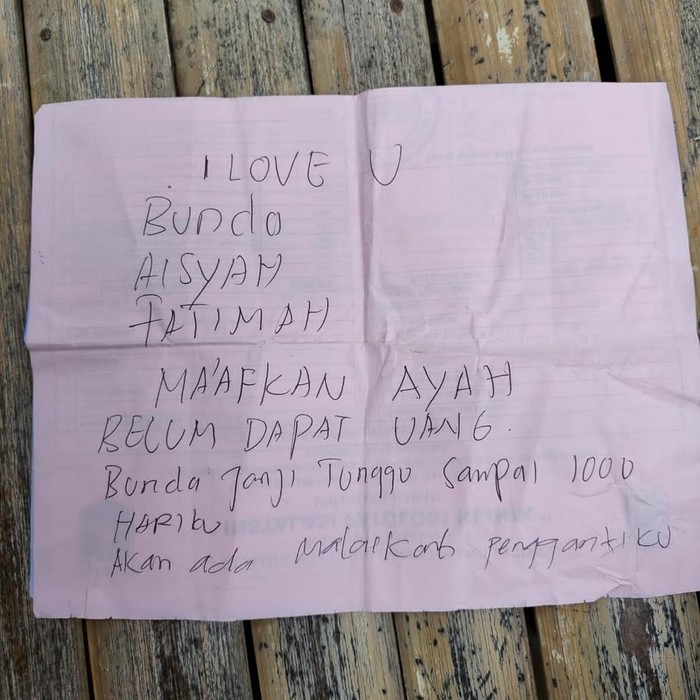 I LOVE U
Bunda
AISYAH
FATIMAH
MA'AFKAN AYAH
BELUM DAPAT UANG.
Bunda Janji Tunggu Sampai 1000
HARIku
Akan ada Malaekat penggantiku